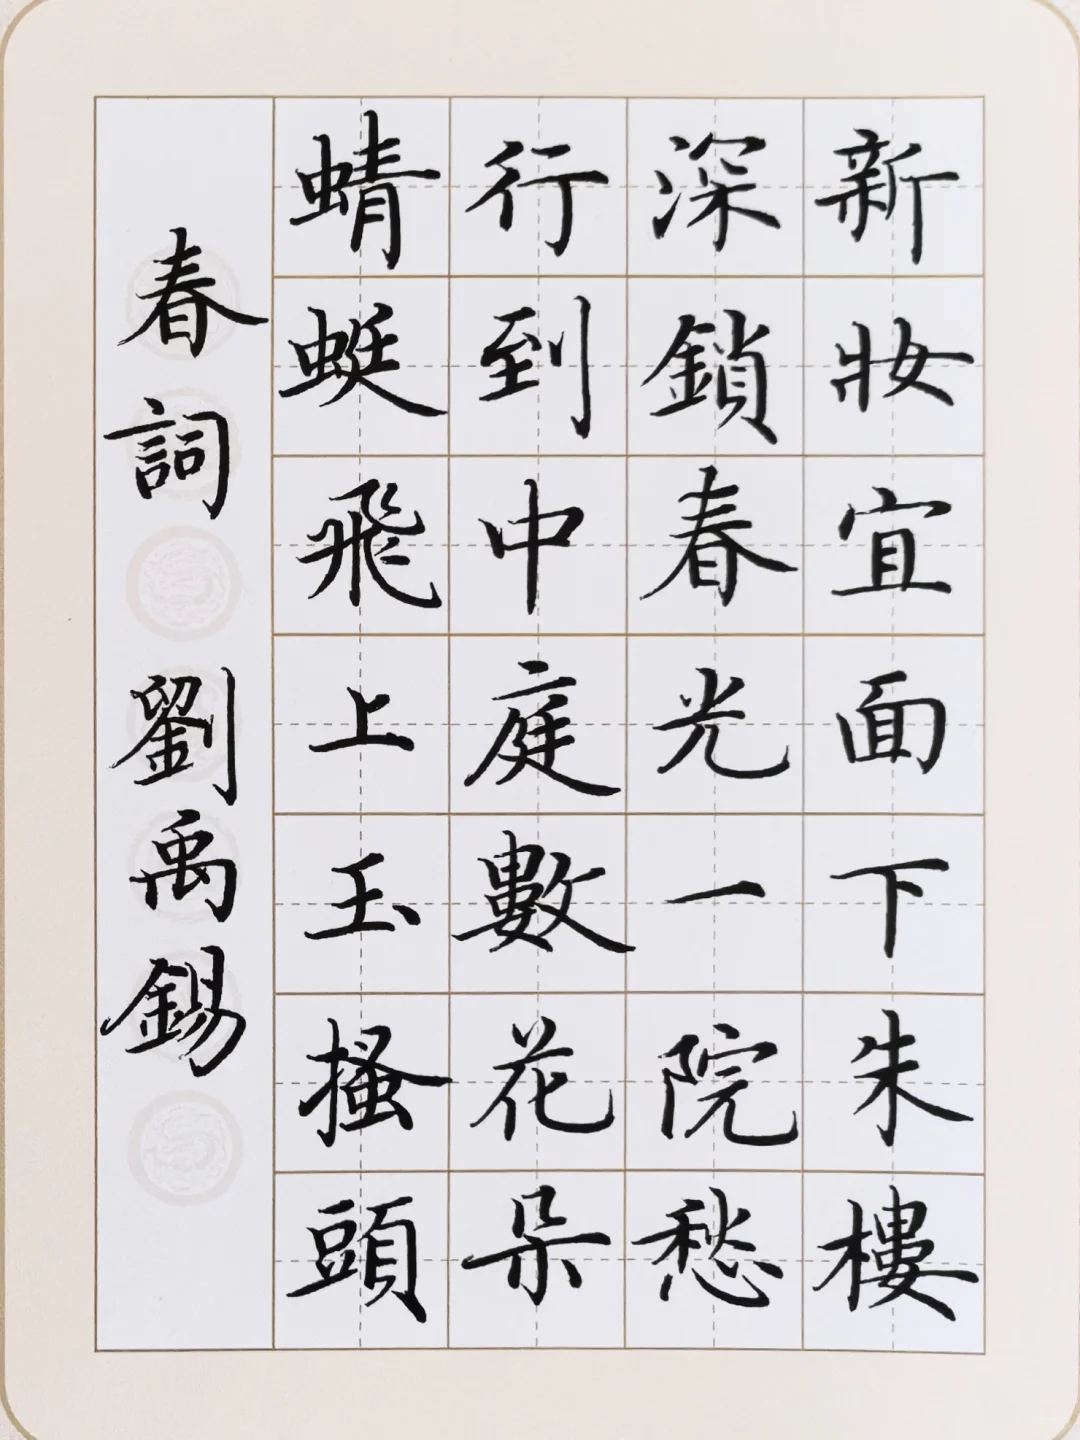 新妝宜面下朱樓
深鎖春光一院愁
行到中庭數花朵
蜻蜓飛上玉搔頭
春詞 劉禹錫